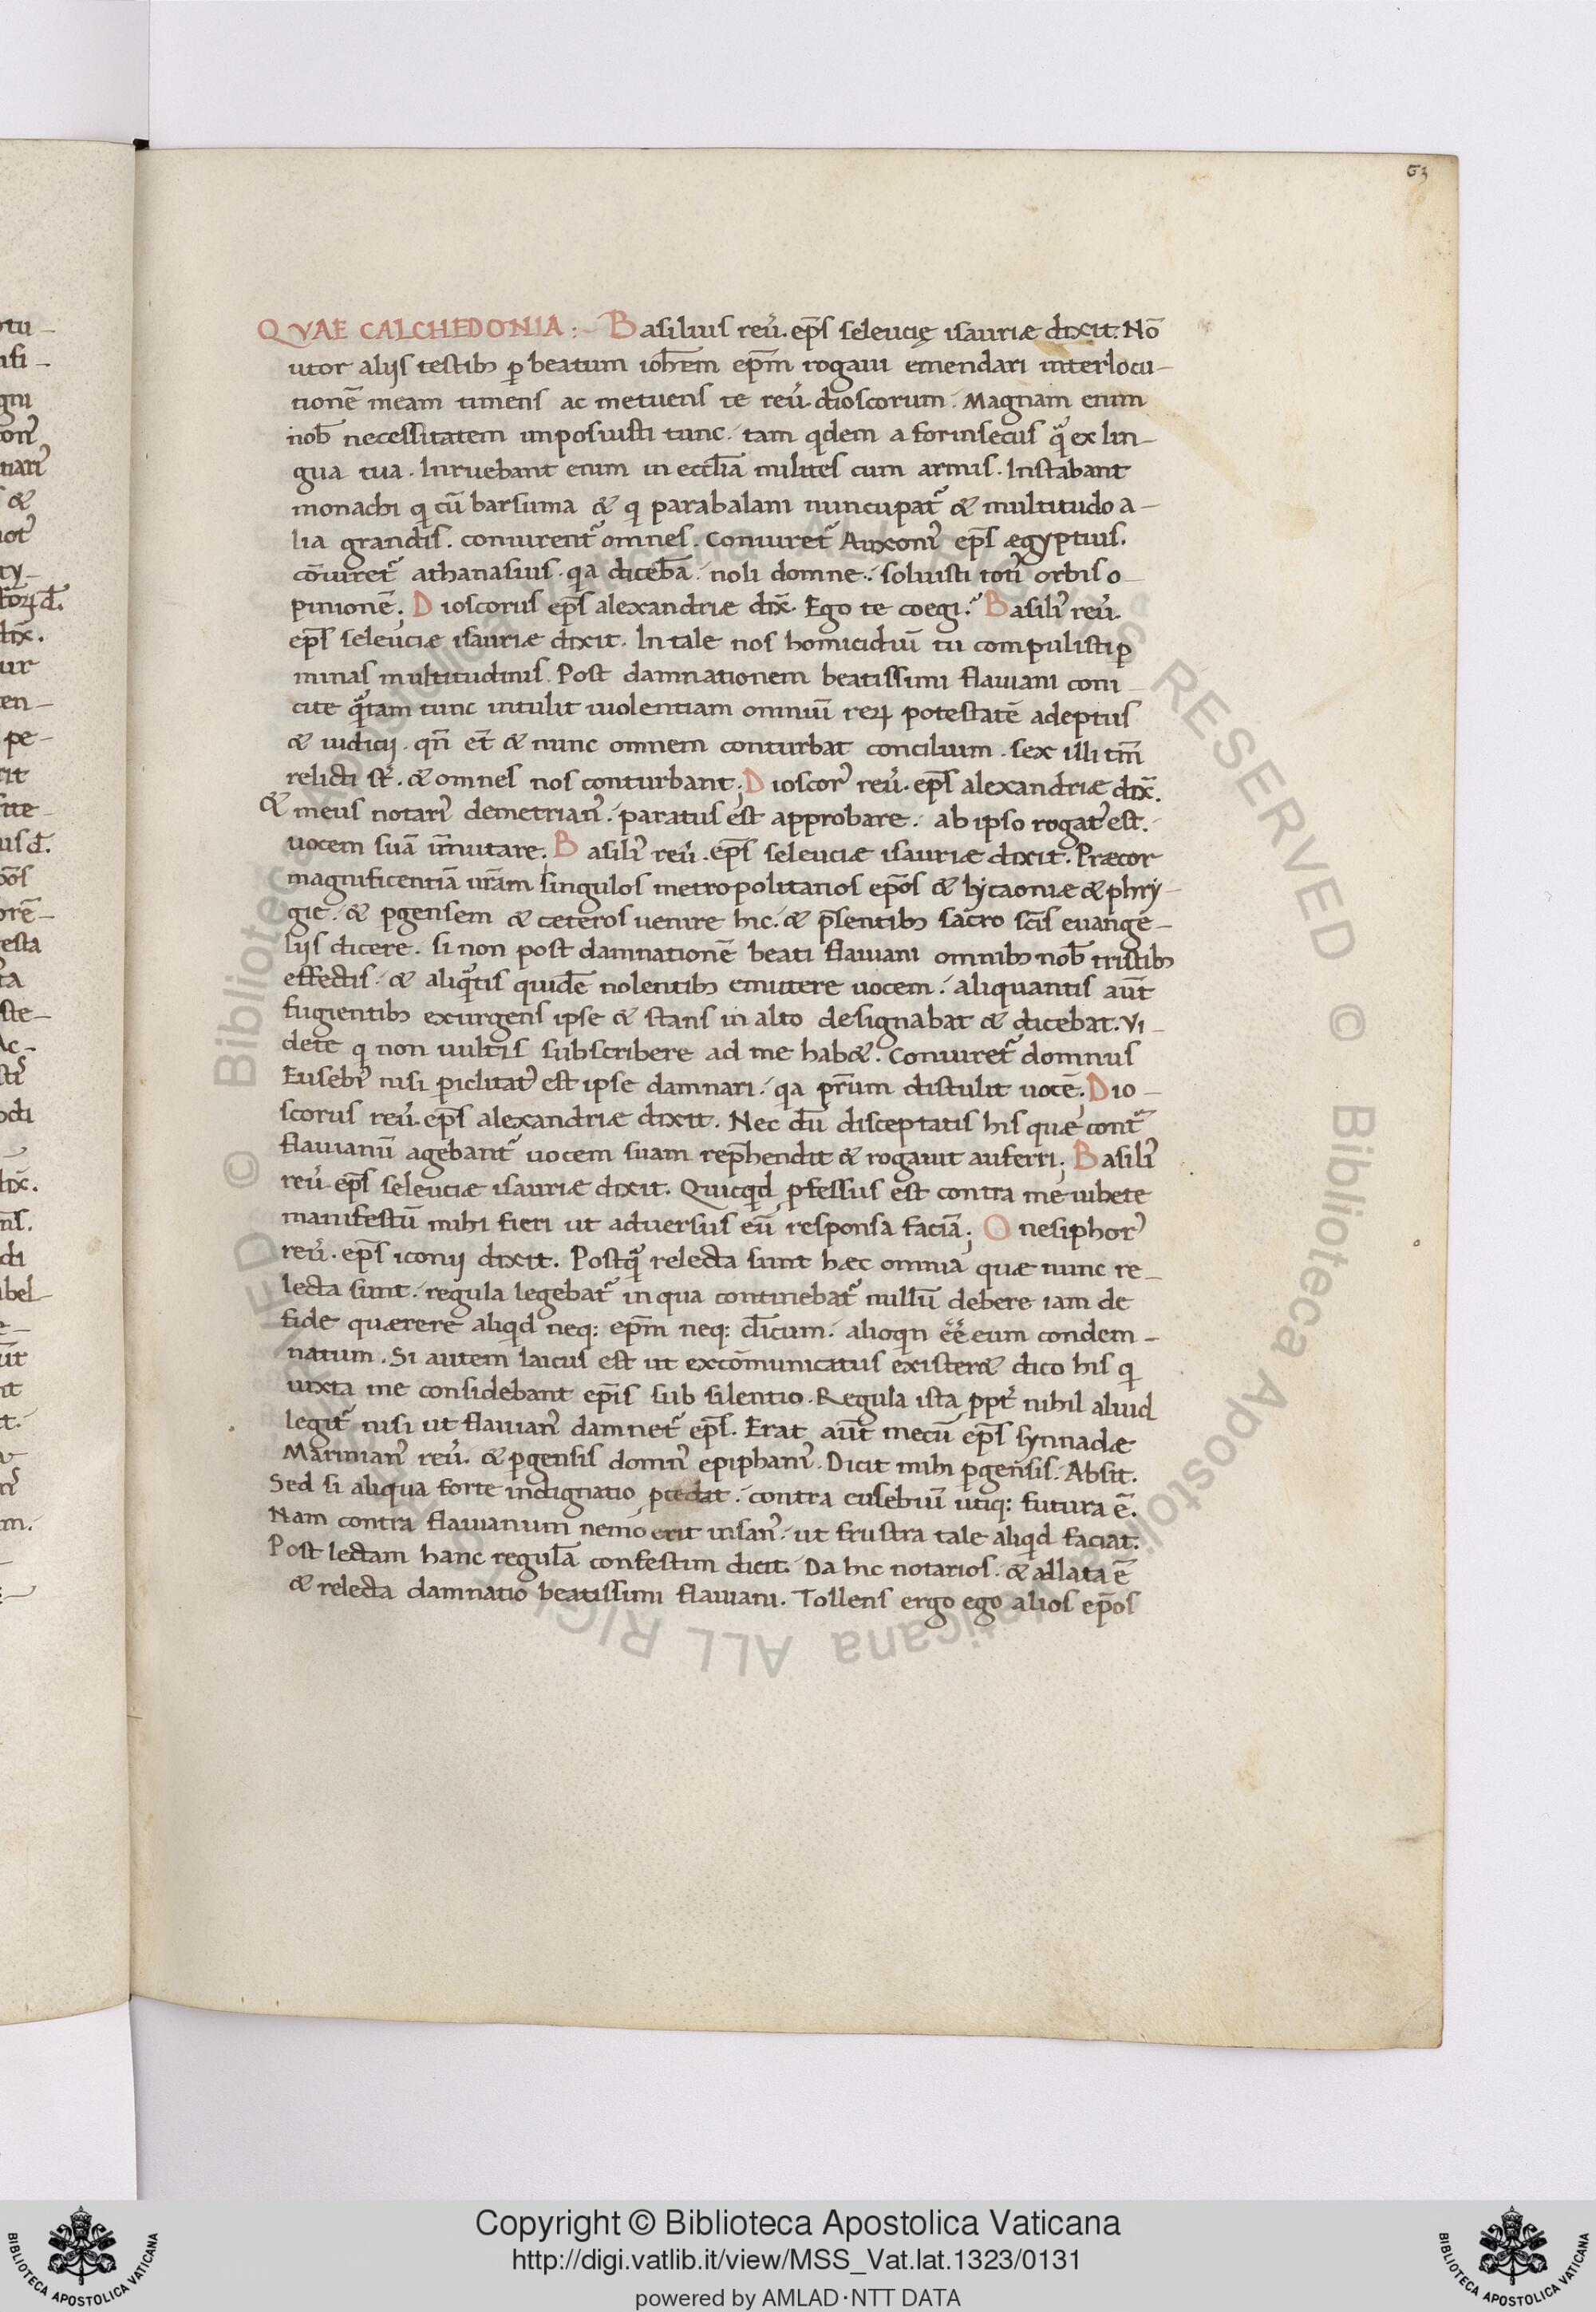 63
QVAE CALCHEDONIA :- Basilius reu̓. ep̅s seleucię isauriæ dixit. Nō
utor aliis testib; ꝑ beatum ioh̅em ep̅m rogaui emendari interlocu-
tionē meam timens ac metuens te reu̓. dioscorum. Magnam enim
nob̅ necessitatem imposuisti tunc. tam qdem a forinsecus qͣ ex lin-
gua tua. Inruebant enim in eccl̅ia milites cum armis. Instabant
monachi q cū barsuma & q parabalani nuncupat᷑ & multitudo a-
lia grandis. coniurent᷑ omnes. Coniuret᷑ Auxoniꝰ ep̅s ægyptius.
cōiuret᷑ athanasius. qa dicebā. noli domne. soluisti totiꝰ orbis o-
pinionē; Dioscorus ep̅s alexandriæ dix̅. Ego te coegi. Basiliꝰ reu̓.
ep̅s seleuciæ isauriæ dixit. In tale nos homicidiū tu compulisti ꝑ
minas multitudinis. Post damnationem beatissimi flauiani coni-
cite qͣtam tunc intulit uiolentiam omniū reꝝ potestatē adeptus
& iudicij. qn̅ et̅ & nunc omnem conturbat concilium. sex illi tm̅
relicti st̅. & omnes nos conturbant; Dioscorꝰ reu̓. ep̅s alexandriæ dix̅.
& meus notariꝰ demetrianꝰ. paratus est approbare. ab ipso rogatꝰ est.
uocem suā im̅utare; Basiliꝰ reu̓. ep̅s seleuciæ isauriæ dixit. Præcor
magnificentiā ur̅am singulos metropolitanos ep̅os & lycaoniæ & phry-
gie. & ꝑgensem & ceteros uenire hic. & p̅sentib; sacro sc̅is euange-
liis dicere. si non post damnationē beati flauiani omnib; nob̅ tristib;
effectis. & aliqͣtis quidē nolentib; emittere uocem. aliquantis aut̅
fugientib; exurgens ipse & stans in alto designabat & dicebat. Vi-
dete q non uultis subscribere ad me hab&. Coniuret᷑ domnus
Eusebiꝰ nisi ꝑiclitatꝰ est ipse damnari. qa pr̅um distulit uocē; Dio-
scorus reu̓. ep̅s alexandriæ dixit. Nec dū disceptatis his quæ contͣ
flauianū agebant᷑ uocem suam rep̅hendit & rogauit auferri; Basiliꝰ
reu̓. ep̅s seleuciæ isauriæ dixit. Quicqd ꝓfessus est contra me iubete
manifestū mihi fieri ut aduersus eū responsa faciā; Onesiphorꝰ
reu̓. ep̅s iconij dixit. Postqͣ relecta sunt hæc omnia quæ nunc re-
lecta sunt. regula legebat᷑ in qua continebat᷑ nullū debere iam de
fide quærere aliqd neq; ep̅m neq; cl̅icum. alioqn ee̅ eum condem-
natum. Si autem laicus est ut excōmunicatus exister& dico his q
iuxta me considebant ep̅is sub silentio. Regula ista ꝓpt̅ nihil aliud
legit᷑ nisi ut flauianꝰ damnet᷑ ep̅s. Erat aut̅ mecū ep̅s synnadæ
Marinianꝰ reu̓. & ꝑgensis domnꝰ epiphaniꝰ. Dicit mihi ꝑgensis. Absit.
Sed si aliqua forte indignatio ꝓcedat. contra eusebiū utiq; futura ē.
Nam contra flauianum nemo erit insanꝰ. ut frustra tale aliqd faciat.
Post lectam hanc regulā confestim dicit. Da hic notarios. & allata ē
& relecta damnatio beatissimi flauiani. Tollens ergo ego alios ep̅os
Copyright © Biblioteca Apostolica Vaticana
http://digi.vatlib.it/view/MSS_Vat.lat.1323/0131
powered by AMLAD·NTT DATA
BIBLIOTECA APOSTOLICA VATICANA
BIBLIOTECA APOSTOLICA VATICANA